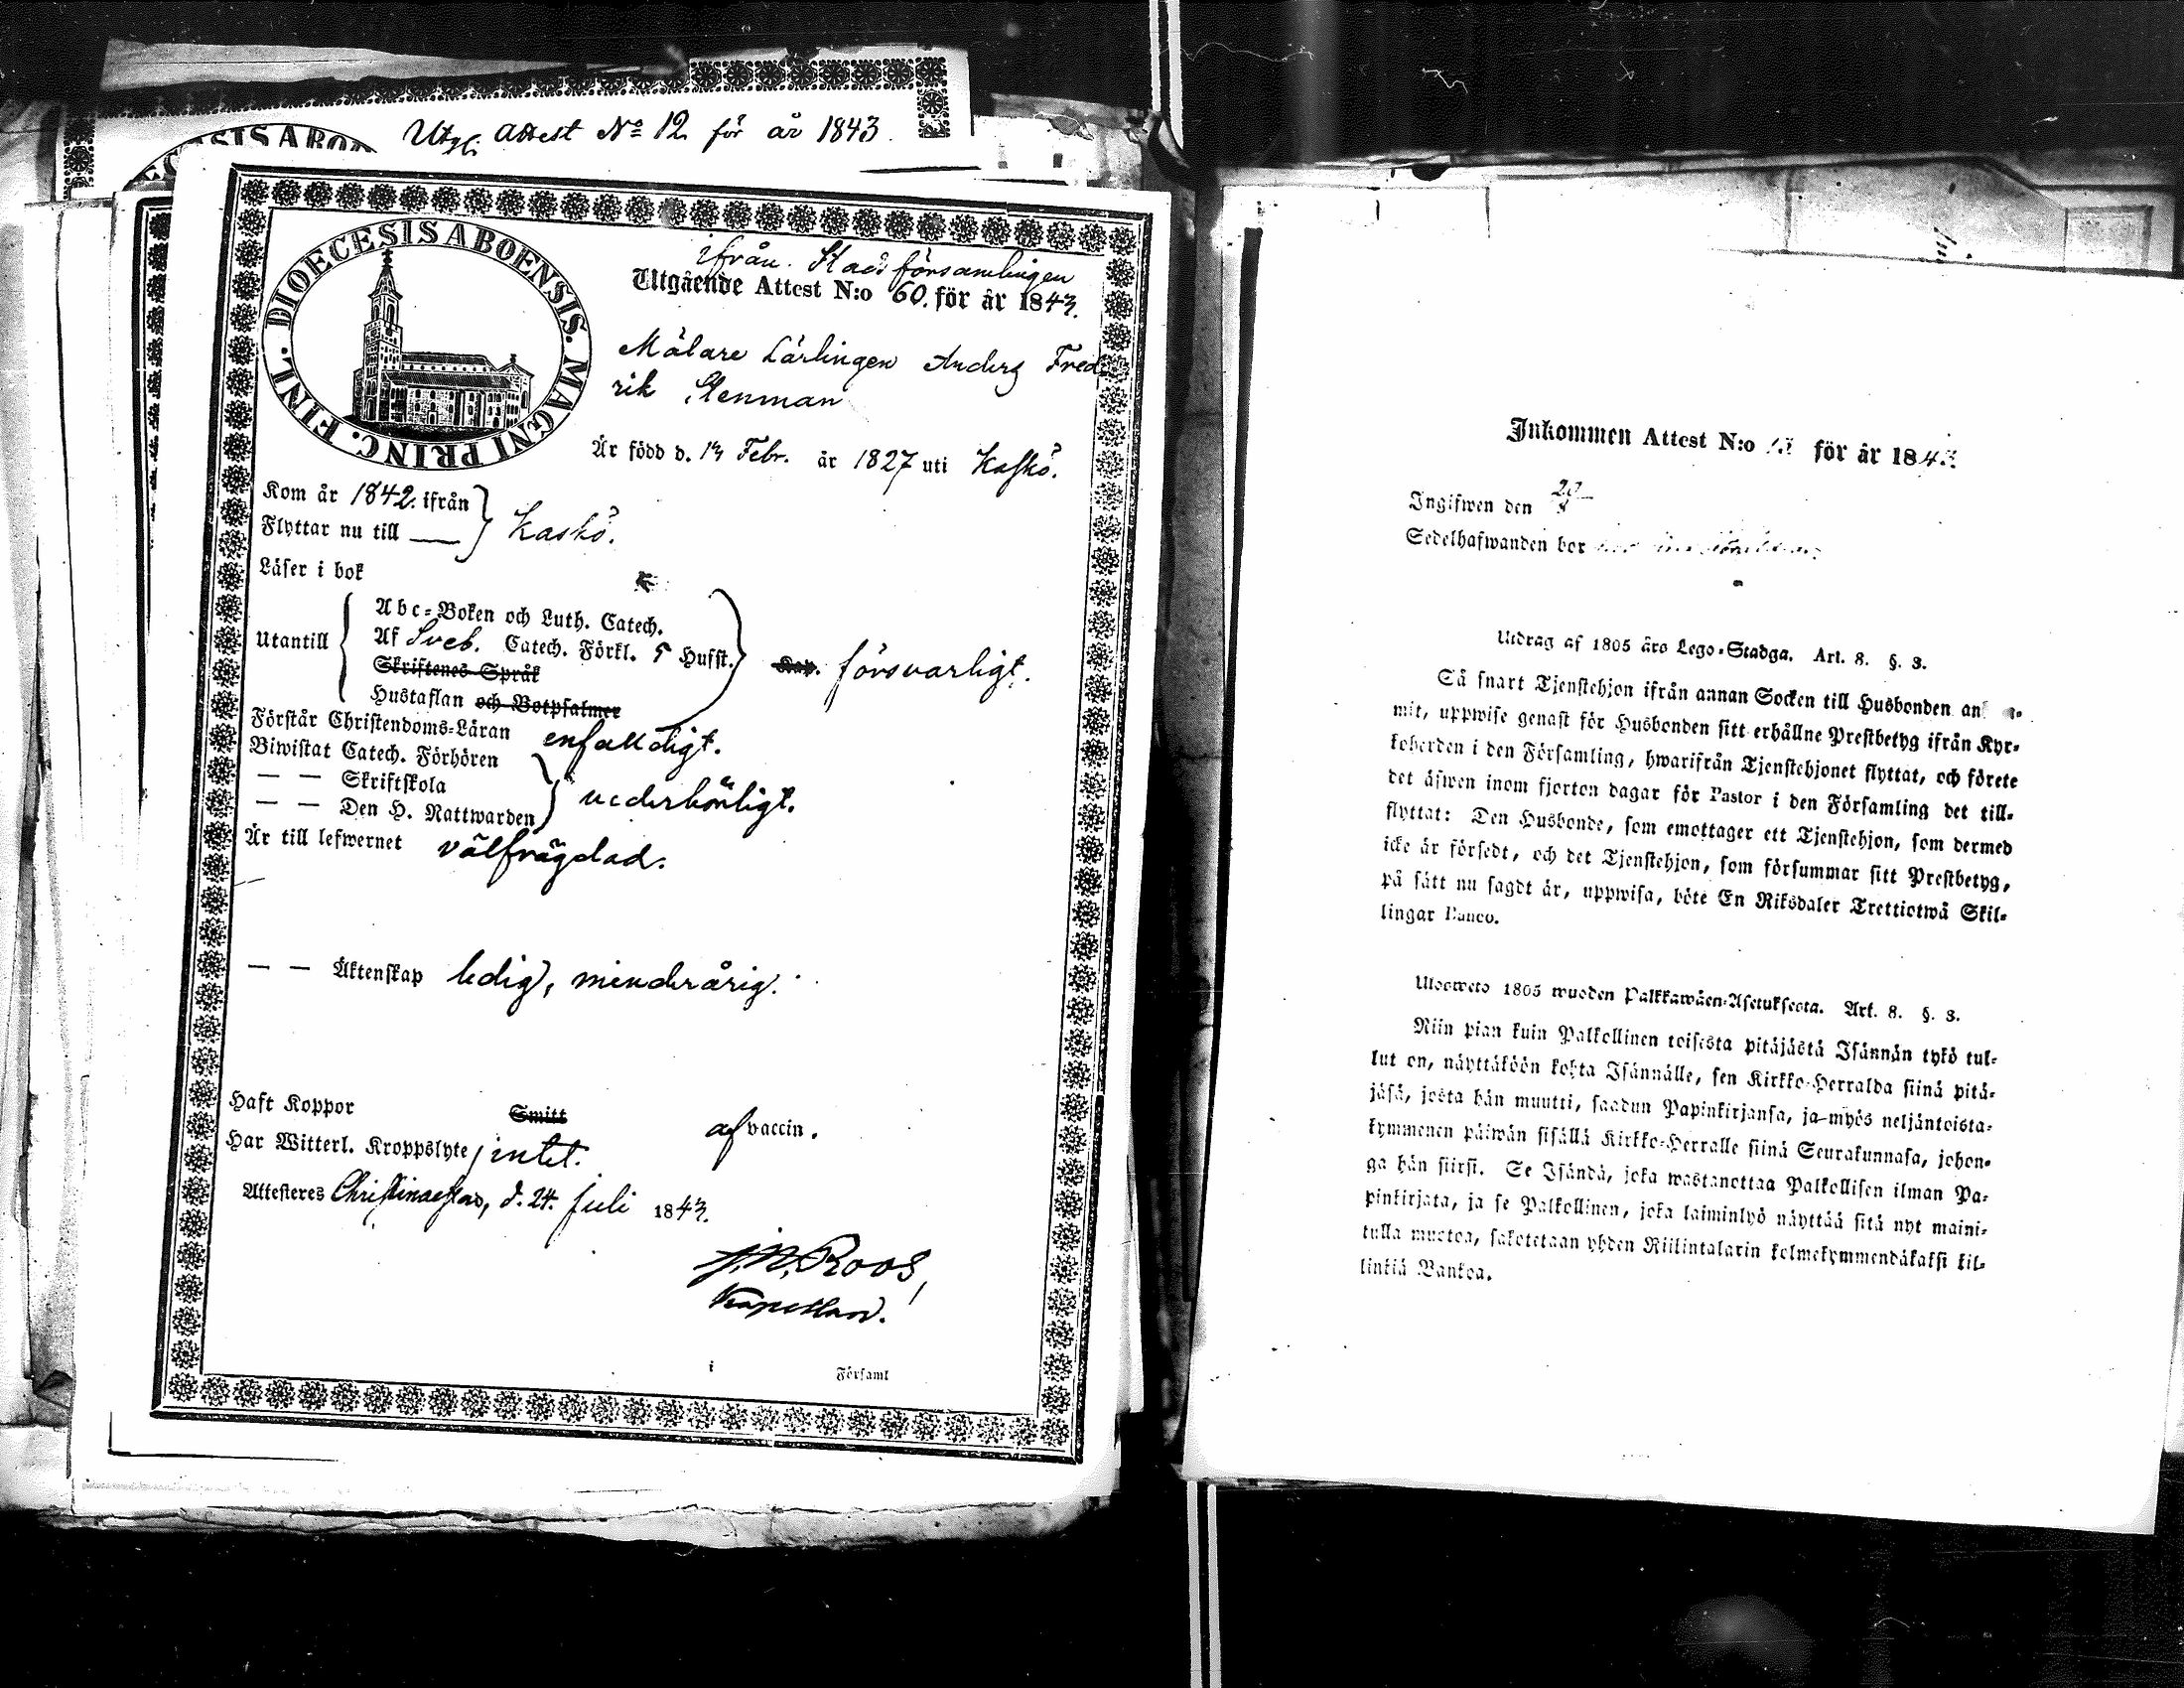 Utg: attest No 12 för år 1843.
DIOECESIS ABOENSIS. MAGNI PRINC. FINL.
ifrån Stadsförsamlingen
Utgående Attest N:o 60. för år 1843.
Målare Lärlingen Anders Fred-
rik Stenman
Är född d. 13 Febr. år 1827 uti Kaskö.
Kom år 1842. ifrån
Flyttar nu till — } Kaskö.
Läser i bok
Utantill
Abc-Boken och Luth. Catech.
Af Sveb. Catech. Förkl. 5 Hufst.
Skriftenes Språk
Hustaflan och Botpsalmer
försvarligt.
Förstår Christendoms-Läran enfaldigt.
Biwistat Catech. Förhören
— — Skriftskola
— — Den H. Nattwarden } vederbörligt.
Är till lefwernet välfrägdad.
— — Äktenskap ledig, minderårig.
Haft Koppor Smitt af vaccin.
Har Witterl. Kroppslyte intet.
Attesteres Christinaestad, d. 24. Juli 1843.
J. N. Roos,
Kapellan.
i Församl
Inkommen Attest N:o för år 1843.
Ingifwen den
Sedelhafwanden bor
Utdrag af 1805 års Lego-Stadga. Art. 8. §. 3.
Så snart Tjenstehjon ifrån annan Socken till Husbonden
mit, uppwise genast för Husbonden sitt erhållne Prestbetyg ifrån Kyr-
koherden i den Församling, hwarifrån Tjenstehjonet flyttat, och förete
det äfwen inom fjorton dagar för Pastor i den Församling det till-
flyttat: Den Husbonde, som emottager ett Tjenstehjon, som dermed
icke är försedt, och det Tjenstehjon, som försummar sitt Prestbetyg,
på sätt nu sagdt är, uppwisa, böte En Riksdaler Trettiotwå Skil-
lingar Banco.
Uloswето 1805 wuoden Palkkawäen-Asetuksesta. Art. 8. §. 3.
Niin pian kuin Palkollinen toisesta pitäjästä Isännän tykö tul-
lut on, näyttäköön kohta Isännälle, sen Kirkko-Herralda siinä pitä-
jäsä, josta hän muutti, saadun Papinkirjansa, ja myös neljäntoista-
kymmenen päiwän sisällä Kirkko-Herralle siinä Seurakunnasa, johon-
ga hän siirsi. Se Isändä, joka wastanottaa Palkollisen ilman Pa-
pinkirjata, ja se Palkollinen, joka laiminlyö näyttää sitä nyt maini-
tulla muotoa, sakotetaan yhden Riilintalarin kolmekymmendäkaksi kil-
linkiä Bankoa.